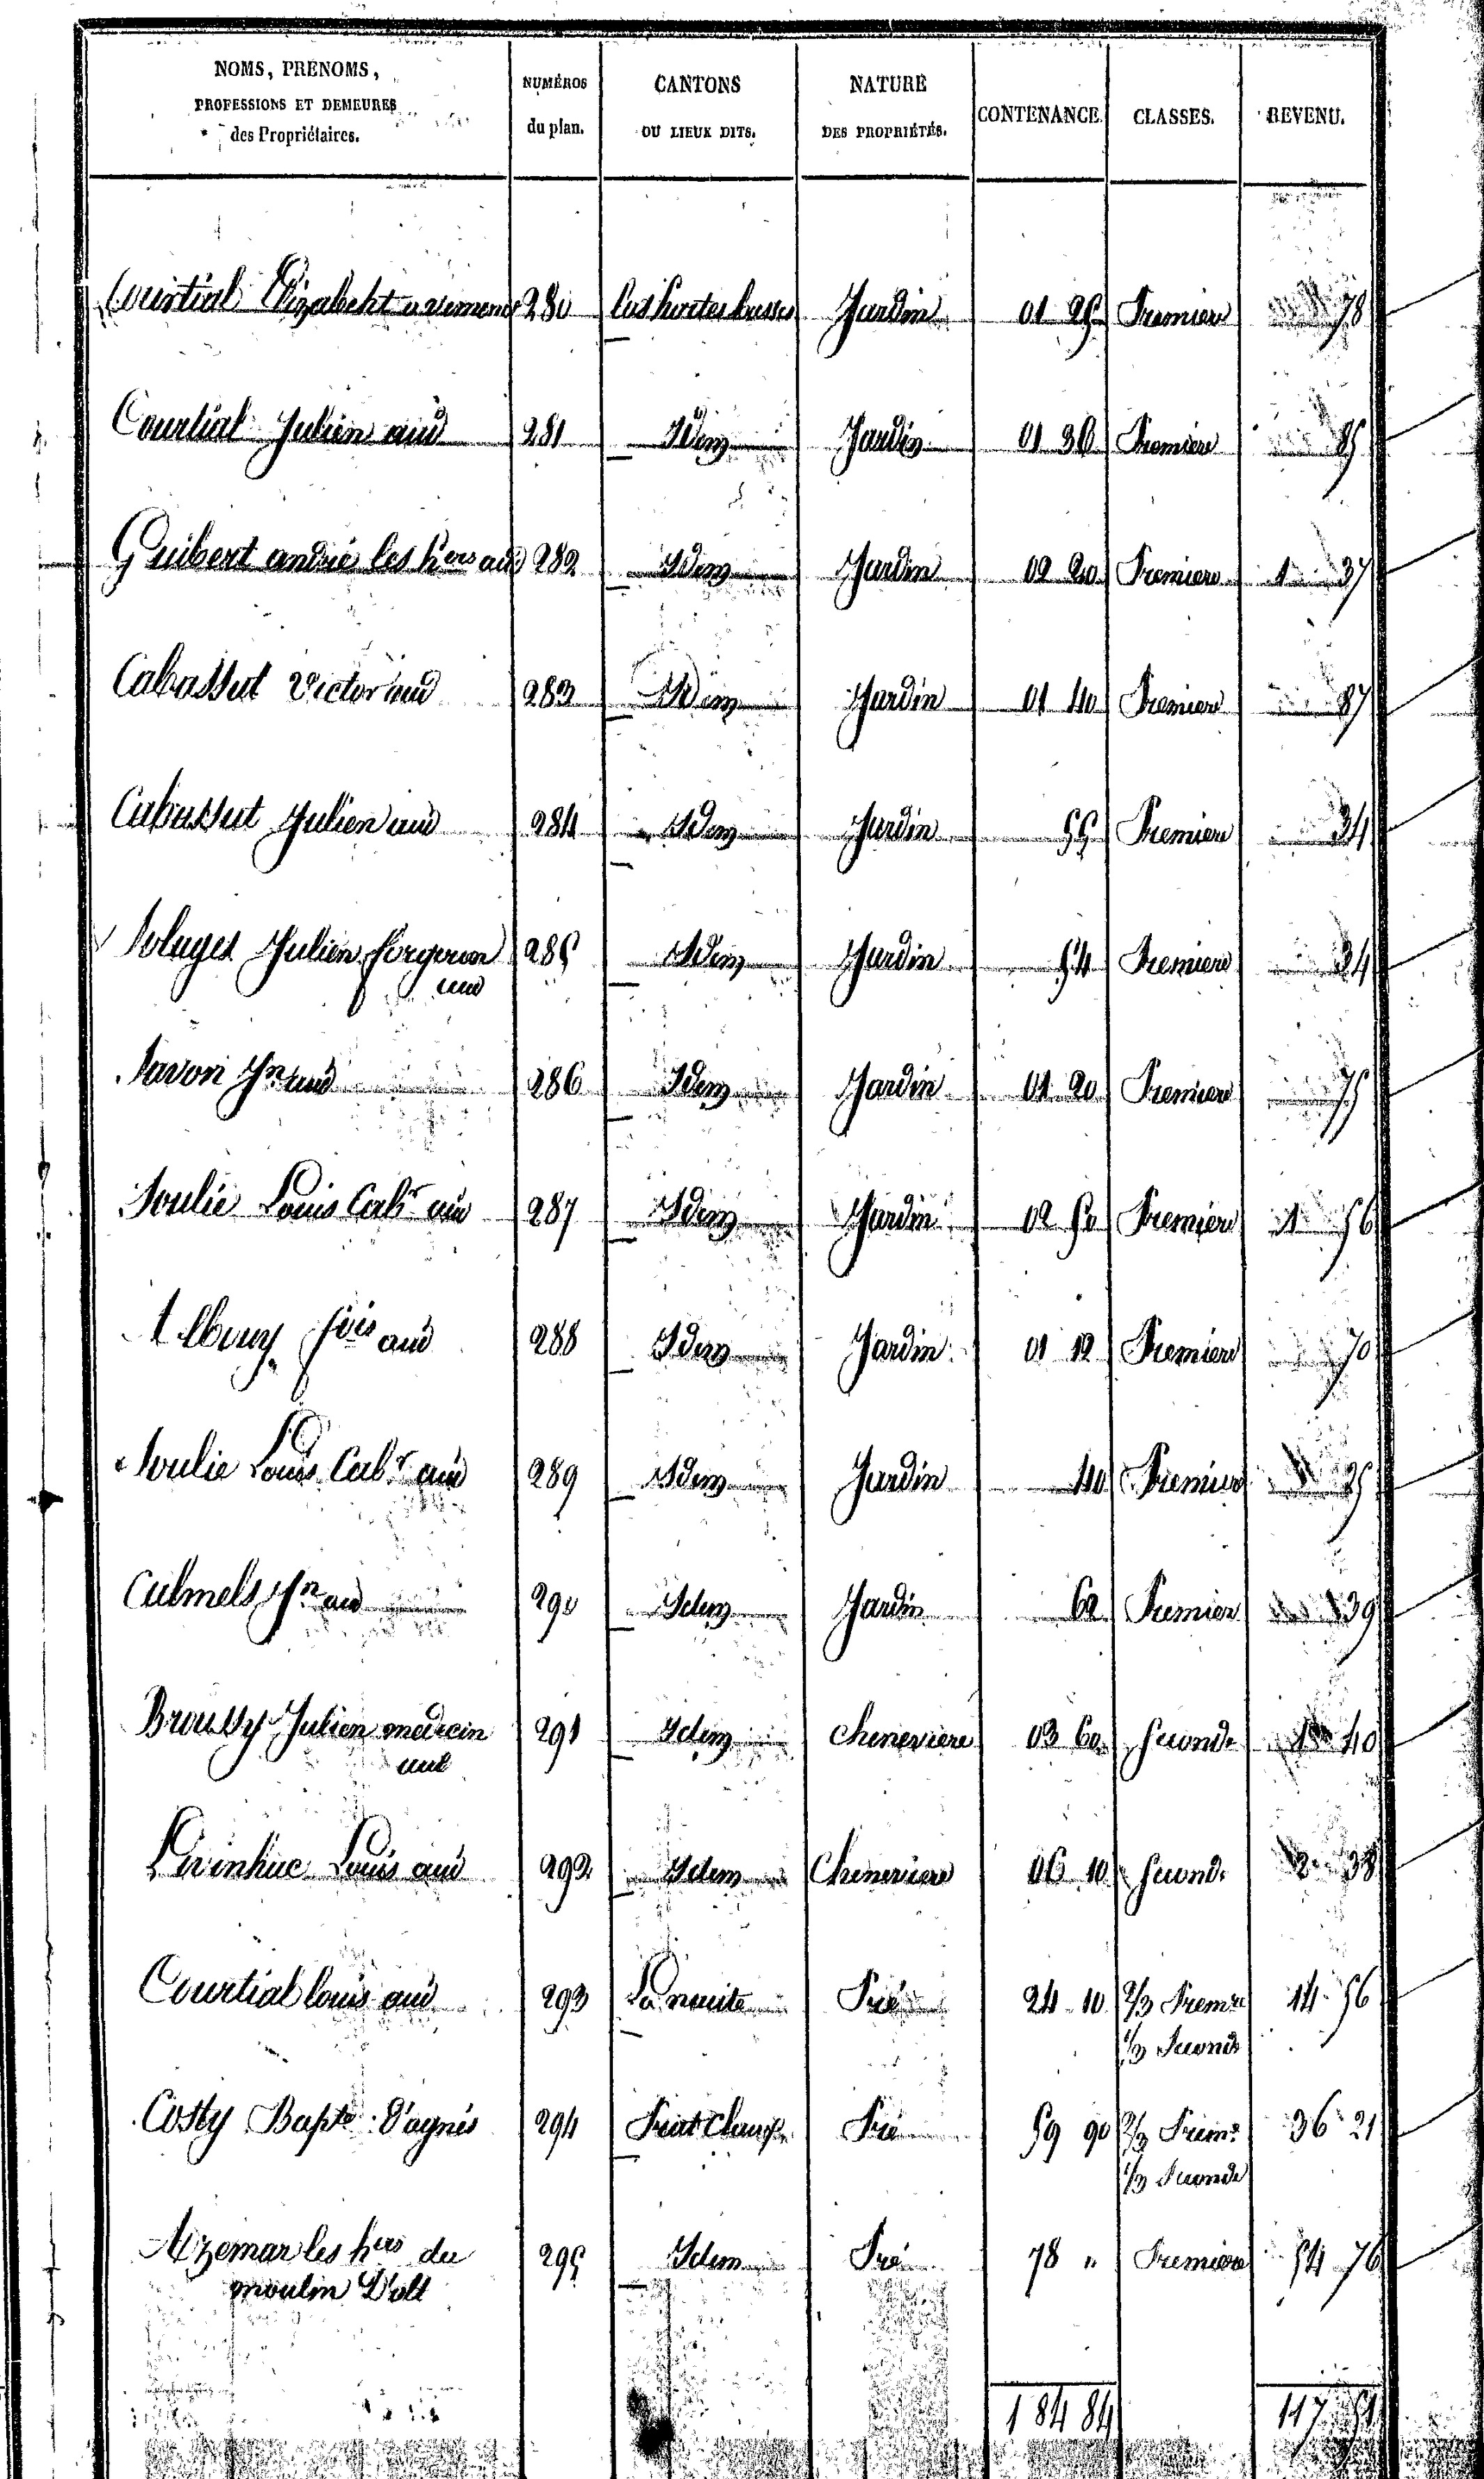 NOMS, PRÉNOMS,
PROFESSIONS ET DEMEURES
des Propriétaires.
NUMÉROS
du plan.
CANTONS
OU LIEUX DITS.
NATURE
DES PROPRIÉTÉS.
CONTENANCE.
CLASSES.
REVENU.
Courtial Elizabeht 280 las hortes basses Jardin 01 25 Premiere 78
Courtial Julien aud 281 Idem Jardin 01 36 Premiere 85
Guibert andré les hers aud 282 Idem Jardin 02 20 Premiere 1 37
Cabassut Victor aud 283 Idem Jardin 01 40 Premiere 87
Cabassut Julien aud 284 Idem Jardin 55 Premiere 34
Solages Julien forgeron 285 Idem Jardin 54 Premiere 34
aud
Savon Jn aud 286 Idem Jardin 01 20 Premiere 75
Soulié Louis Cabr aud 287 Idem Jardin 02 50 Premiere 1 56
Albouy fois aud 288 Idem Jardin 01 12 Premiere 70
Soulié Louis Cabr aud 289 Idem Jardin 40 Premiere 25
Calmels Jn aud 290 Idem Jardin 62 Premiere 39
Broussy Julien médecin 291 Idem Cheneviere 03 60 Seconde 1 40
aud
Livinhac Louis aud 292 Idem Cheneviere 06 10 Seconde 2 38
Courtial louis aud 293 Pré 24 10 2/3 Premre 14 56
1/3 Seconde
Costy Bapte D'agnés 294 Prat Pré 59 90 2/3 Preme 36 21
1/3 Seconde
Azemar les hers du 295 Idem Pré 78 " Premiere 54 76
moulin D'olt
1 84 84 117 51